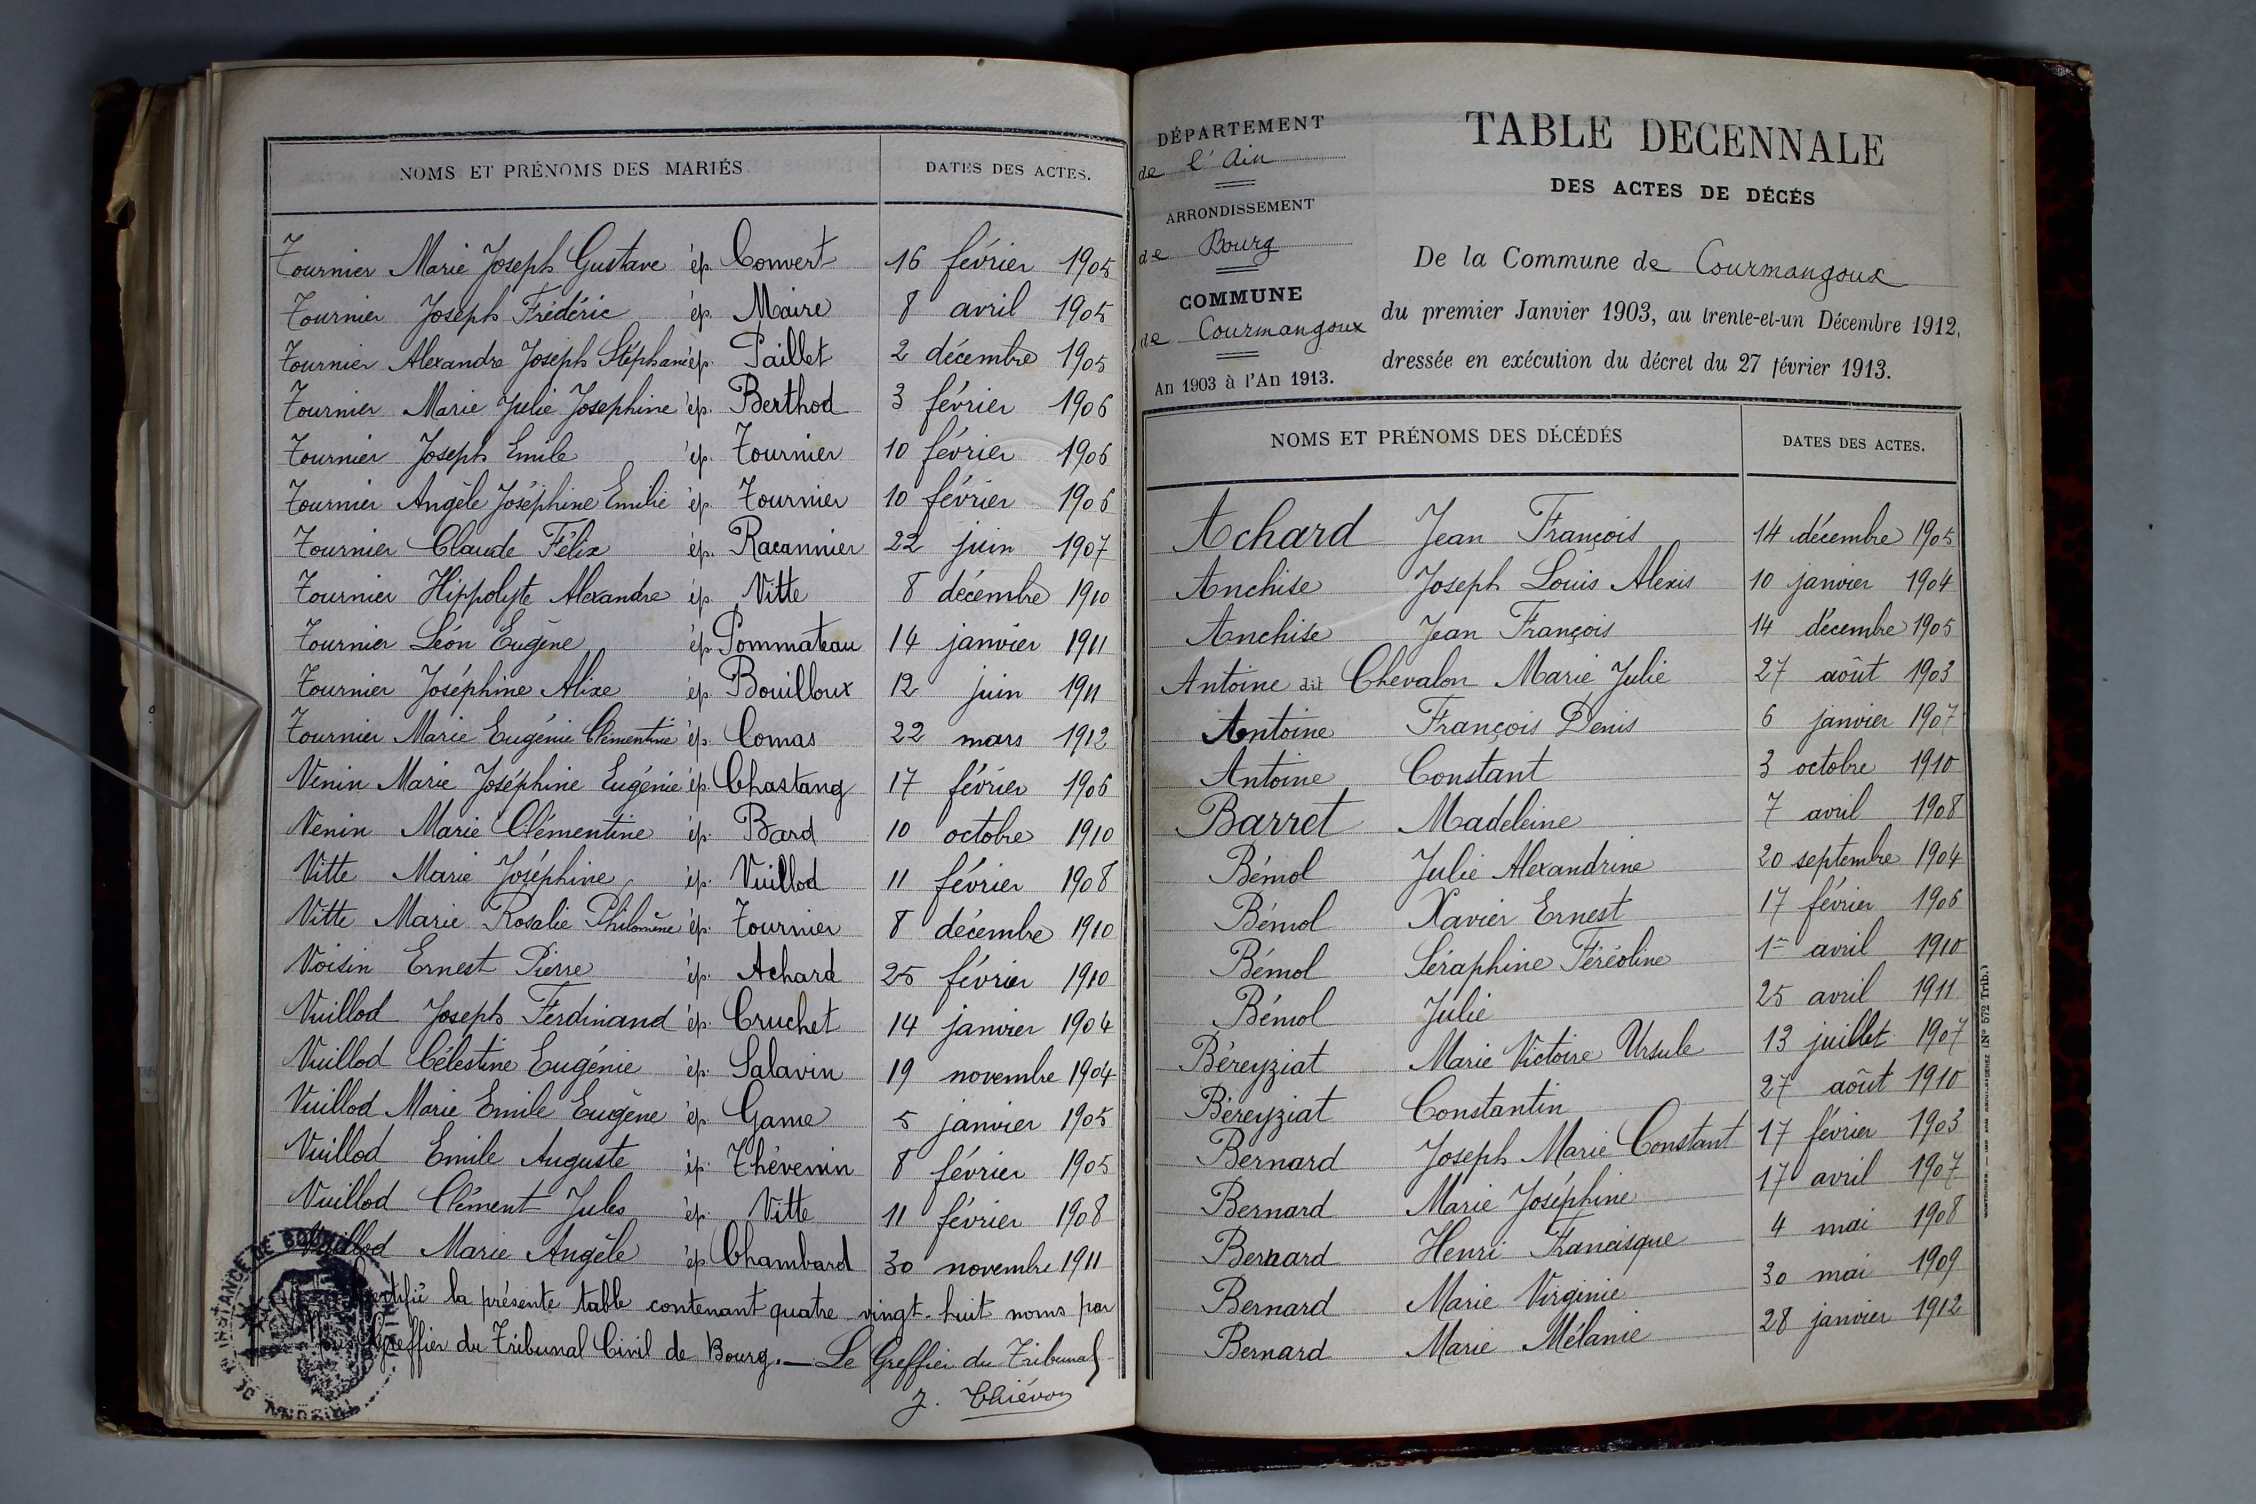 NOMS ET PRÉNOMS DES MARIÉS DATES DES ACTES.
Tournier Marie Joseph Gustave ép. Convert 16 février 1905
Tournier Joseph Frédéric ép. Maire 8 avril 1905
Tournier Alexandre Joseph Stéphane ép. Paillet 2 décembre 1905
Tournier Marie Julie Josephine ép. Berthod 3 février 1906
Tournier Joseph Emile ép. Tournier 10 février 1906
Tournier Angèle Joséphine Emilie ép. Tournier 10 février 1906
Tournier Claude Félix ép. Racannier 22 juin 1907
Tournier Hippolyte Alexandre ép. Vitte 8 décembre 1910
Tournier Léon Eugène ép. Pommateau 14 janvier 1911
Tournier Joséphine Alixe ép. Bouilloux 12 juin 1911
Tournier Marie Eugénie Clémentine ép. Comas 22 mars 1912
Venin Marie Joséphine Eugénie ép. Chastang 17 février 1906
Venin Marie Clémentine ép. Bard 10 octobre 1910
Vitte Marie Joséphine ép. Vuillod 11 février 1908
Vitte Marie Rosalie Philomène ép. Tournier 8 décembre 1910
Voisin Ernest Pierre ép. Achard 25 février 1910
Vuillod Joseph Ferdinand ép. Cruchet 14 janvier 1904
Vuillod Célestine Eugénie ép. Salavin 19 novembre 1904
Vuillod Marie Emile Eugène ép. Game 5 janvier 1905
Vuillod Emile Auguste ép. Thévenin 8 février 1905
Vuillod Clément Jules ép. Vitte 11 février 1908
Vuillod Marie Angèle ép. Chambard 30 novembre 1911
Certifié la présente table contenant quatre-vingt-huit noms par
Greffier du Tribunal Civil de Bourg. — Le Greffier du Tribunal
J. Thiévon
INSTANCE DE BOURG
DÉPARTEMENT
de l'Ain
ARRONDISSEMENT
de Bourg
COMMUNE
de Courmangoux
An 1903 à l'An 1913.
TABLE DECENNALE
DES ACTES DE DÉCÉS
De la Commune de Courmangoux
du premier Janvier 1903, au trente-et-un Décembre 1912,
dressée en exécution du décret du 27 février 1913.
NOMS ET PRÉNOMS DES DÉCÉDÉS DATES DES ACTES.
Achard Jean François 14 décembre 1905
Anchise Joseph Louis Alexis 10 janvier 1904
Anchise Jean François 14 décembre 1905
Antoine dit Chevalon Marie Julie 27 août 1903
Antoine François Denis 6 janvier 1907
Antoine Constant 3 octobre 1910
Barret Madeleine 7 avril 1908
Bémol Julie Alexandrine 20 septembre 1904
Bémol Xavier Ernest 17 février 1906
Bémol Séraphine Féréoline 1er avril 1910
Bémol Julie 25 avril 1911
Béreyziat Marie Victoire Ursule 13 juillet 1907
Béreyziat Constantin 27 août 1910
Bernard Joseph Marie Constant 17 février 1903
Bernard Marie Joséphine 17 avril 1907
Bernard Henri Francisque 4 mai 1908
Bernard Marie Virginie 30 mai 1909
Bernard Marie Mélanie 28 janvier 1912
(N° 572 Trib.)